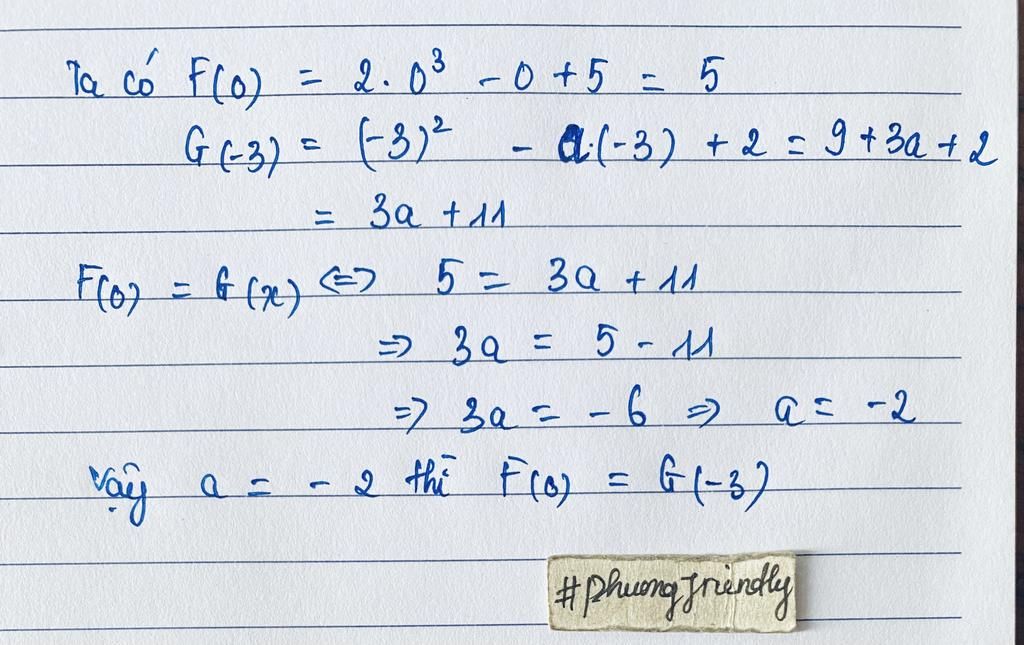 Ta có F(0) = 2.0³ - 0 + 5 = 5
G(-3) = (-3)² - a.(-3) + 2 = 9 + 3a + 2
= 3a + 11
F(0) = G(x) <=> 5 = 3a + 11
=> 3a = 5 - 11
=> 3a = - 6 => a = -2
Vậy a = - 2 thì F(0) = G(-3)
#phuongfriendly